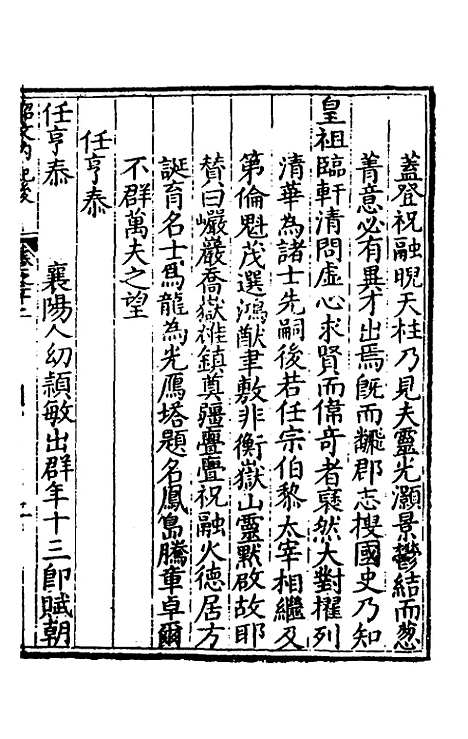 蓋登祝融睨天柱乃見夫靈光灝景鬱結而葱
菁意必有異才出焉旣而繙郡志搜國史乃知
皇祖臨軒清問虛心求賢而偉竒者裒然大對擢列
清華為諸士先嗣後若任宗伯黎太宰相繼及
第倫魁茂選鴻猷聿敷非衡嶽山靈默啟故耶
賛曰巗巖喬嶽雄鎮奠疆亹亹祝融火德居方
誕育名士爲龍為光鴈塔題名鳳島騰章卓爾
不群萬夫之望
任亨泰
任亨泰 襄陽人幼頴敏出群年十三卽賦朝